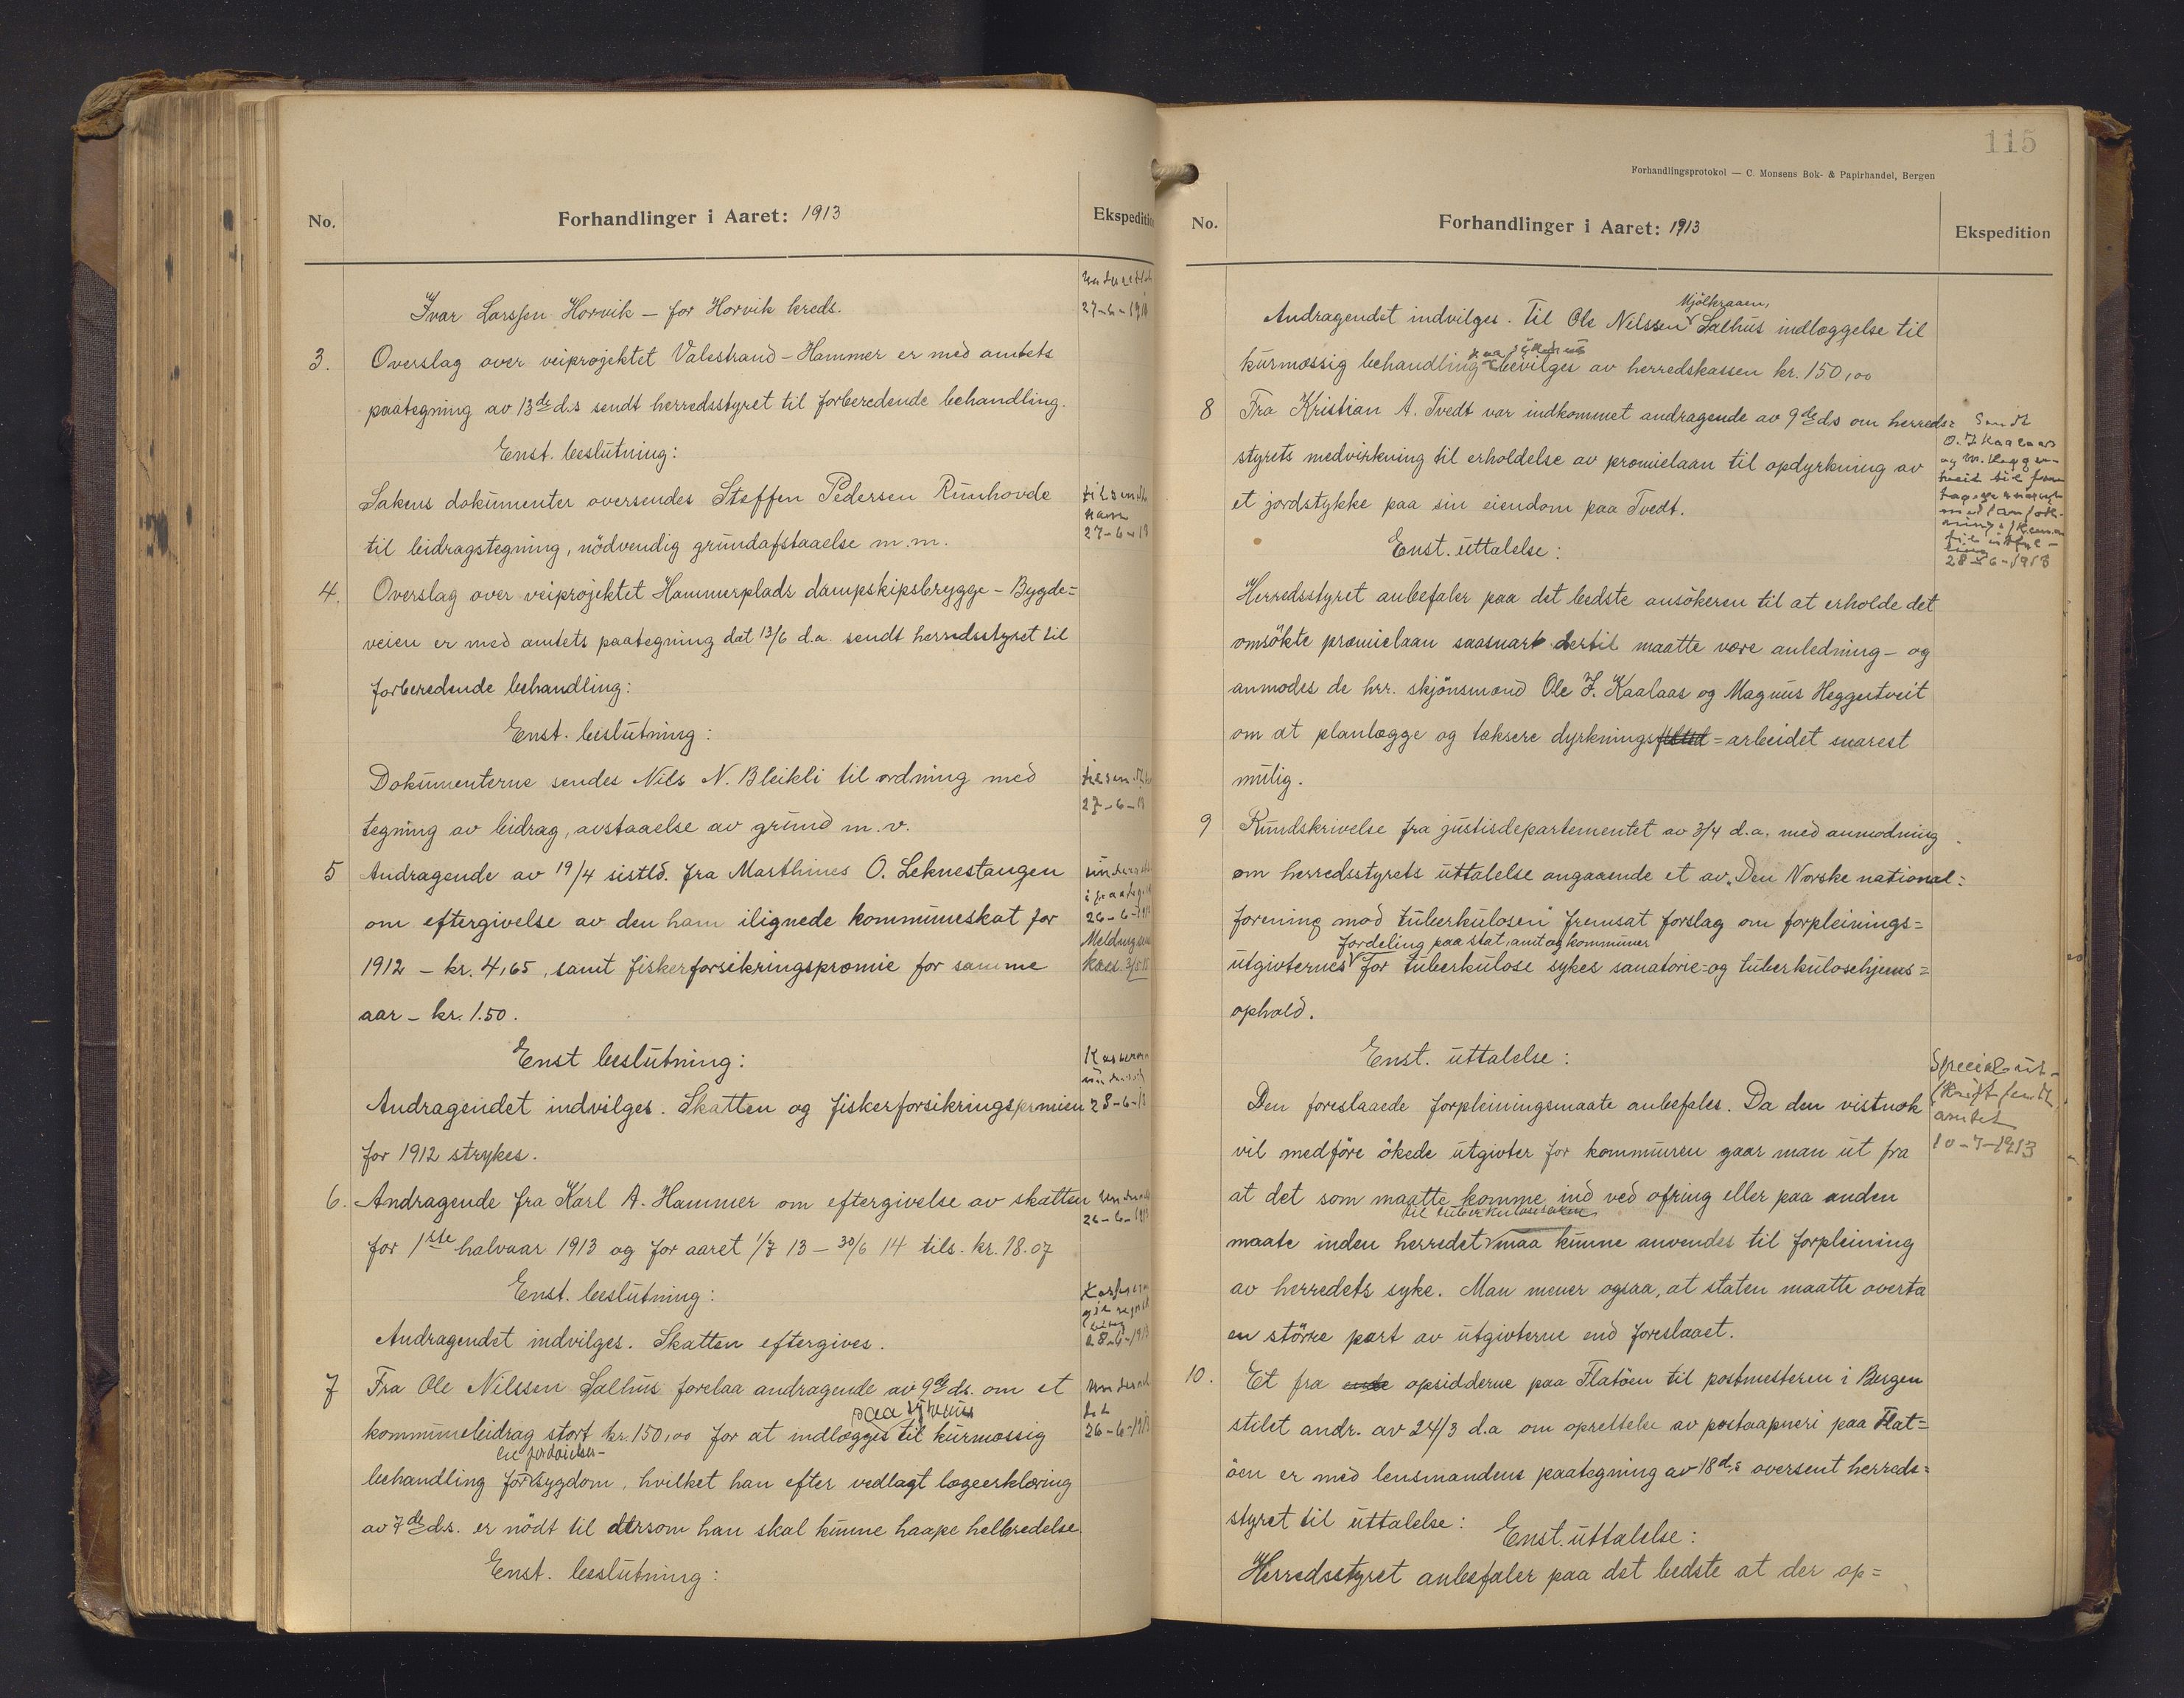 No.
Forhandlinger i Aaret: 1913
Ivar Larssen Horvik — for Horvik kreds.
27-6-1913
3. Overslag over veiprojektet Valestrand-Hammer er med amtets
paategning av 13de d.s sendt herredsstyret til forberedende behandling.
Enst. beslutning:
Sakens dokumenter oversendes Steffen Pedersen Runhovde
til bidragstegning, nödvendig grundafstaaelse m.m.
27-6-13
4. Overslag over veiprojektet Hammerplads dampskipsbrygge - Bygde=
veien er med amtets paategning dat 13/6 d.a. sendt herredsstyret til
forberedende behandling:
Enst. beslutning:
Dokumenterne sendes Nils N. Bleikli til ordning med
tegning av bidrag, avstaaelse av grund m.v.
27-6-13
5 Andragende av 19/4 sistld. fra Marthines O. Leknestangen
om eftergivelse av den ham ilignede kommuneskat for
1912 - kr. 4,65, samt fiskerforsikringspræmie for samme
aar - kr. 1.50.
26-6-1913
Enst beslutning:
Andragendet indvilges. Skatten og fiskerforsikringspræmien
for 1912 strykes.
28-6-13
6. Andragende fra Karl A. Hammer om eftergivelse av skatten
for 1ste halvaar 1913 og for aaret 1/7 13 - 30/6 14 tils. kr. 18.07
26-6-1913
Enst. beslutning:
Andragendet indvilges. Skatten eftergives.
28-6-1913
7 Fra Ole Nilssen Salhus forelaa andragende av 9de ds. om et
paa sykehus
kommunebidrag stort kr. 150,00 for at indlægges til kurmæssig
behandling for sygdom, hvilket han efter vedlagt lægeerklæring
av 7de d.s. er nödt til dersom han skal kunne haape helbredelse.
26-6-1913
Enst. beslutning:
115
Forhandlingsprotokol — C. Monsens Bok- & Papirhandel, Bergen
No.
Forhandlinger i Aaret: 1913
Ekspedition
Mjölkraaen,
Andragendet indvilges. Til Ole Nilssen Salhus indlæggelse til
paa sykehus
kurmæssig behandling bevilges av herredskassen kr. 150,00
8 Fra Kristian A. Tvedt var indkommet andragende av 9de ds om herreds=
styrets medvirkning til erholdelse av præmielaan til opdyrkning av
et jordstykke paa sin eiendom paa Tvedt.
Sendt
O. J Kaalaas
28-6-1913
Enst. uttalelse:
Herredsstyret anbefaler paa det bedste ansökeren til at erholde det
omsökte præmielaan saasnart dertil maatte være anledning - og
anmodes de hrr. skjönsmænd Ole J. Kaalaas og Magnus Heggertveit
om at planlægge og taksere dyrknings=arbeidet snarest
mulig.
9 Rundskrivelse fra justisdepartementet av 3/4 d.a. med anmodning
om herredsstyrets uttalelse angaaende et av "Den Norske national=
forening mod tuberkulosen" fremsat forslag om forpleinings=
fordeling paa stat, amt og kommuner
utgivternes for tuberkulose sykes sanatorie- og tuberkulosehjems=
ophold.
Enst. uttalelse:
Den foreslaaede forpleiningsmaate anbefales. Da den vistnok
vil medföre ökede utgivter for kommunen gaar man ut fra
at det som maatte komme ind ved ofring eller paa anden
til tuberkulosesaken
maate inden herredet maa kunne anvendes til forpleining
av herredets syke. Man mener ogsaa, at staten maatte overta
en större part av utgivterne end foreslaaet.
Specialut-
skrift sendt
amtet
10-7-1913
10. Et fra opsidderne paa Flatöen til postmesteren i Bergen
stilet andr. av 24/3 d.a om oprettelse av postaapneri paa Flat=
öen er med lensmandens paategning av 18 d.s oversent herreds=
styret til uttalelse:
Enst. uttalelse:
Herredsstyret anbefaler paa det bedste at der op=